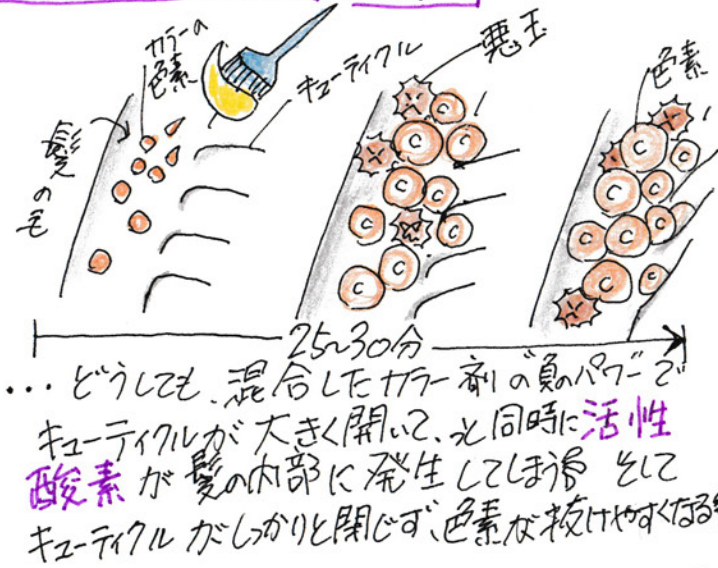 カラーの
色素
キューティクル
髪の毛
悪玉
色素
C C C C C C C C C
C C C C C C C C
25~30分
・・・どうしても、混合したカラー剤の負のパワーで
キューティクルが大きく開いて、っと同時に活性
酸素が髪の内部に発生してしまう そして
キューティクルがしっかりと閉じず、色素が抜けやすくなる